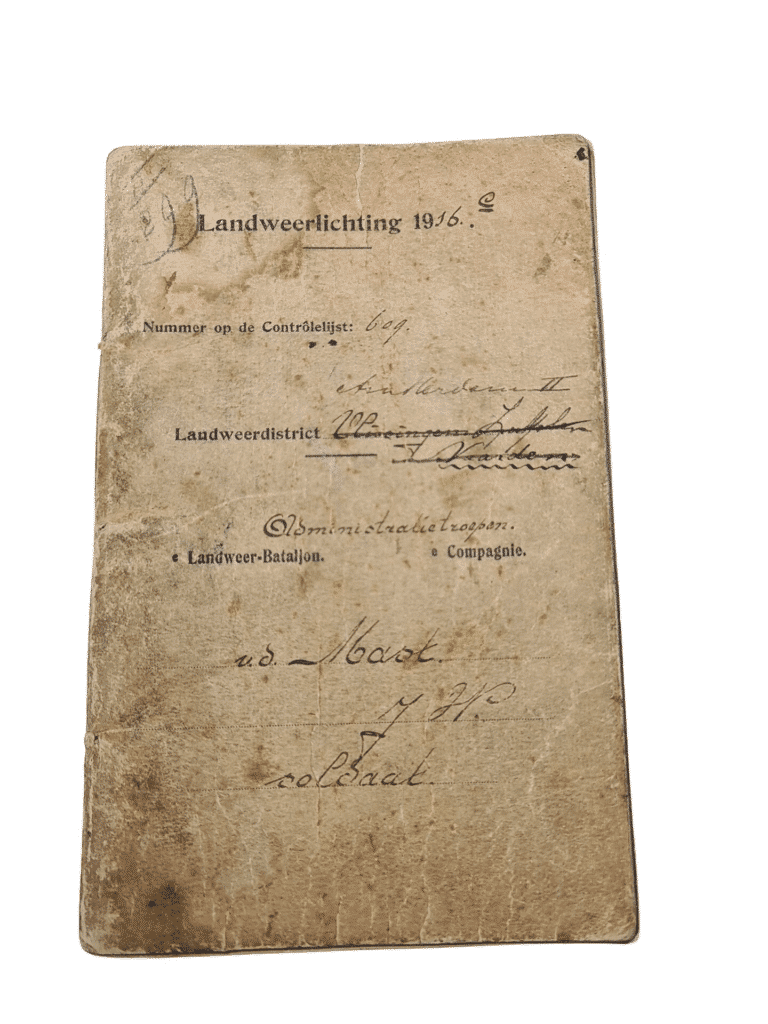 299
Landweerlichting 1916. C
Nummer op de Contrôlelijst: 609.
Amsterdam II
Landweerdistrict Vlissingen Zutfelen
Naarden
Administratietroepen.
e Landweer-Bataljon. e Compagnie.
v.d. Mast.
J W.
soldaat.